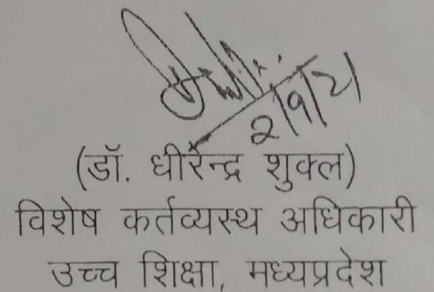 2/9/21
(डॉ. धीरेन्द्र शुक्ल)
विशेष कर्तव्यस्थ अधिकारी
उच्च शिक्षा, मध्यप्रदेश